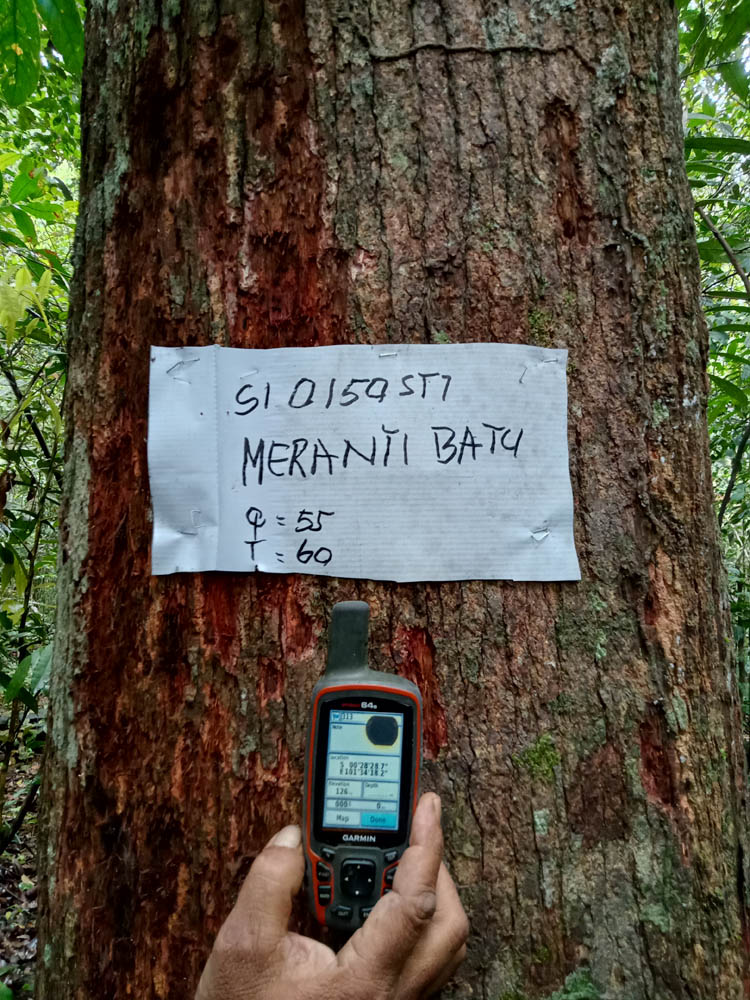 SI 0150 STI
MERANTI BATU
φ = 55
T = 60
64s
Note
Location
S 00°28'28.7"
E101°34'38.2"
Elevation
Depth
126
Map
Done
GARMIN